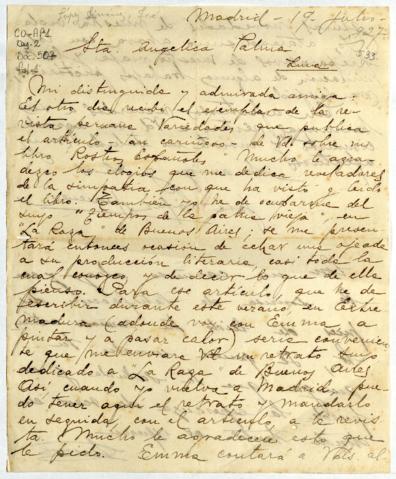 Madrid - 19 - Julio -
927-
CO-AP1
Caj-2
Doc 507
Fol. 1
533
Sta Angélica Palma
Lima
Mi distinguida y admirada amiga:
El otro día recibí el ejemplar de la re-
vista semana Variedades, que publica
el artículo tan cariñoso - de Vd. sobre mi
libro Rostros Españoles. Mucho le agra-
dezco los elogios que me dedica reveladores
de la simpatía con que ha visto y leído
el libro. También yo he de ocuparme del
suyo "Tiempos de la patria vieja" en
"La Raza" de Buenos Aires; se me presen-
tará entonces ocasión de echar una ojeada
a su producción literaria casi toda la
cual conozco y de decir lo que de ella
pienso. Para ese artículo, que he de
escribir durante este verano, en Extre
madura (adonde voy con Emma a
pintar y a pasar calor) sería convenien
te que me enviara Vd un retrato suyo
dedicado a La Raza de Buenos Aires
Así cuando yo vuelva a Madrid, pue
do tener aquí el retrato y mandarlo
en seguida, con el artículo, a la revis
ta. Mucho le agradeceré esto que
le pido. Emma contará a Vds. al